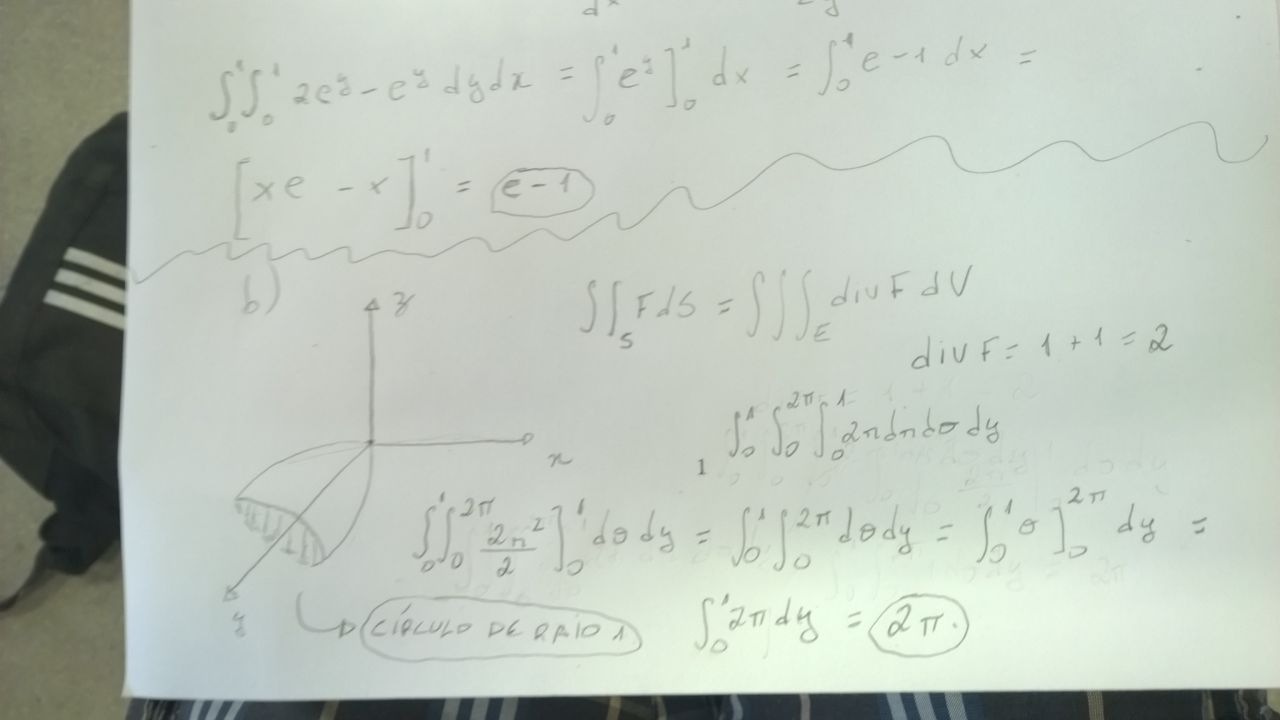 ∫₀¹∫₀¹ 2e^y − e^y dydx = ∫₀¹ e^y]₀¹ dx = ∫₀¹ e−1 dx =
[xe − x]₀¹ = e−1
b)
z
∫∫_S F dS = ∫∫∫_E div F dV
div F = 1 + 1 = 2
∫₀¹ ∫₀^2π ∫₀¹ 2r dr dθ dy
x
1
∫₀¹∫₀^2π 2r²/2]₀¹ dθ dy = ∫₀¹∫₀^2π dθ dy = ∫₀¹ θ]₀^2π dy =
y
CÍRCULO DE RAIO 1
∫₀¹ 2π dy = 2π.